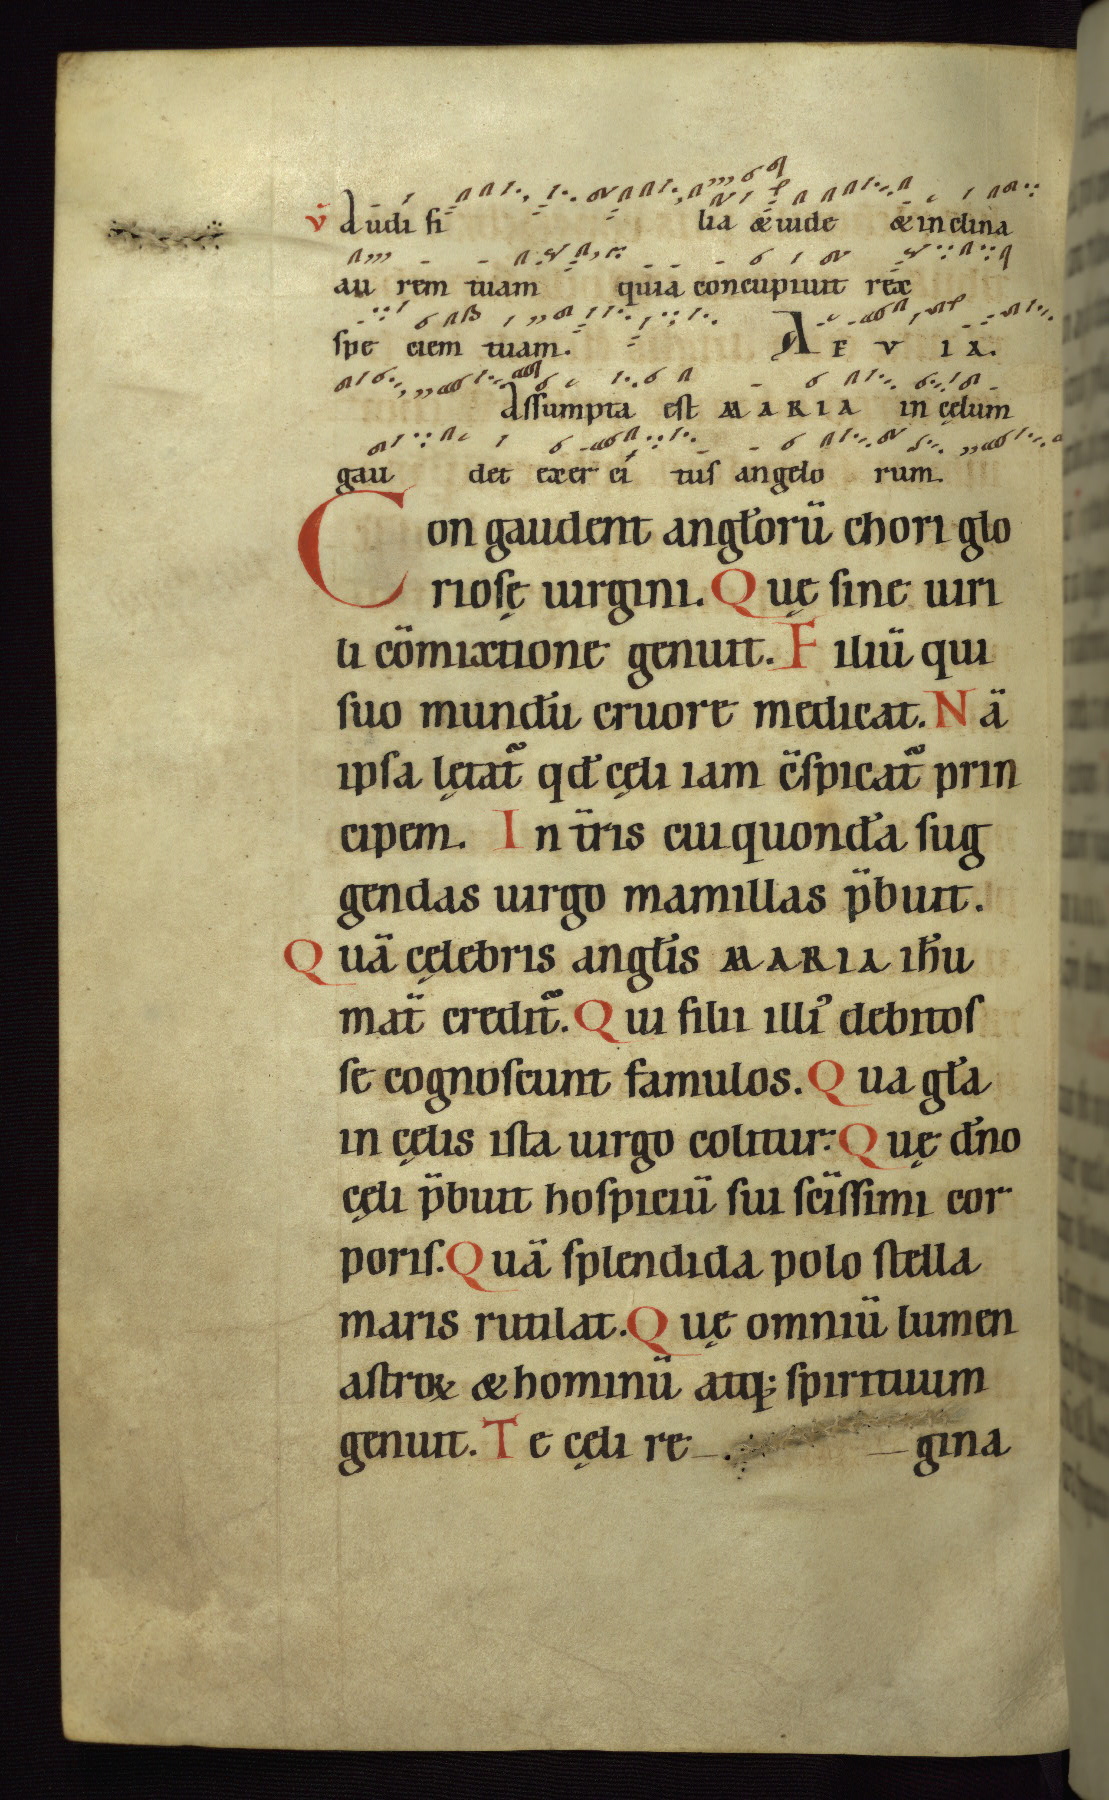 v̄ Audi fi lia & uide & inclina
au rem tuam quia concupiuit rex
ſpe ciem tuam. A E V I A.
Aſſumpta eſt MARIA in cęlum
gau det exer ci tuſ angelo rum.
Con gaudent angl̄orū chori glo
rioſę uirgini. Quę ſine uiri
li cōmixtione genuit. Filiū qui
ſuo mundū cruore medicat. Nā
ipſa lętat᷑ qd̄ cęli iam c̄ſpicat᷑ prin
cipem. In t̄ris cui quondā ſug
gendas uirgo mamillas p̄buit.
Quā cęlebris angl̄is MARIA ih̄u
mat̄ credit᷑. Qui filii illi᷒ debitoſ
ſe cognoſcunt famulos. Qua gl̄a
in cęlis iſta uirgo colitur: Quę d̄no
cęli p̄buit hoſpiciū ſui ſc̄iſſimi cor
poriſ. Quā ſplendida polo ſtella
maris rutilat. Quę omniū lumen
aſtroꝝ & hominū atq; ſpirituum
genuit. Te cęli re – gina